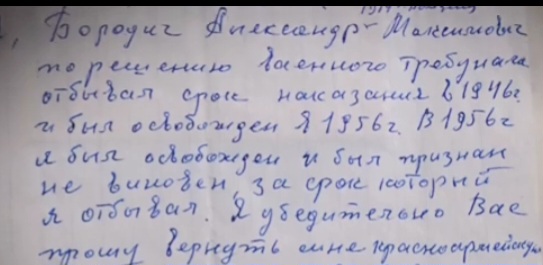 Бородич Александр Максимович
по решению военного трибунала
отбывал срок наказания в 1946г.
и был освобожден я 1956г. В 1956г
я был освобожден и был признан
не виновен, за срок который
я отбывал. Я убедительно Вас
прошу вернуть мне красноармейскую